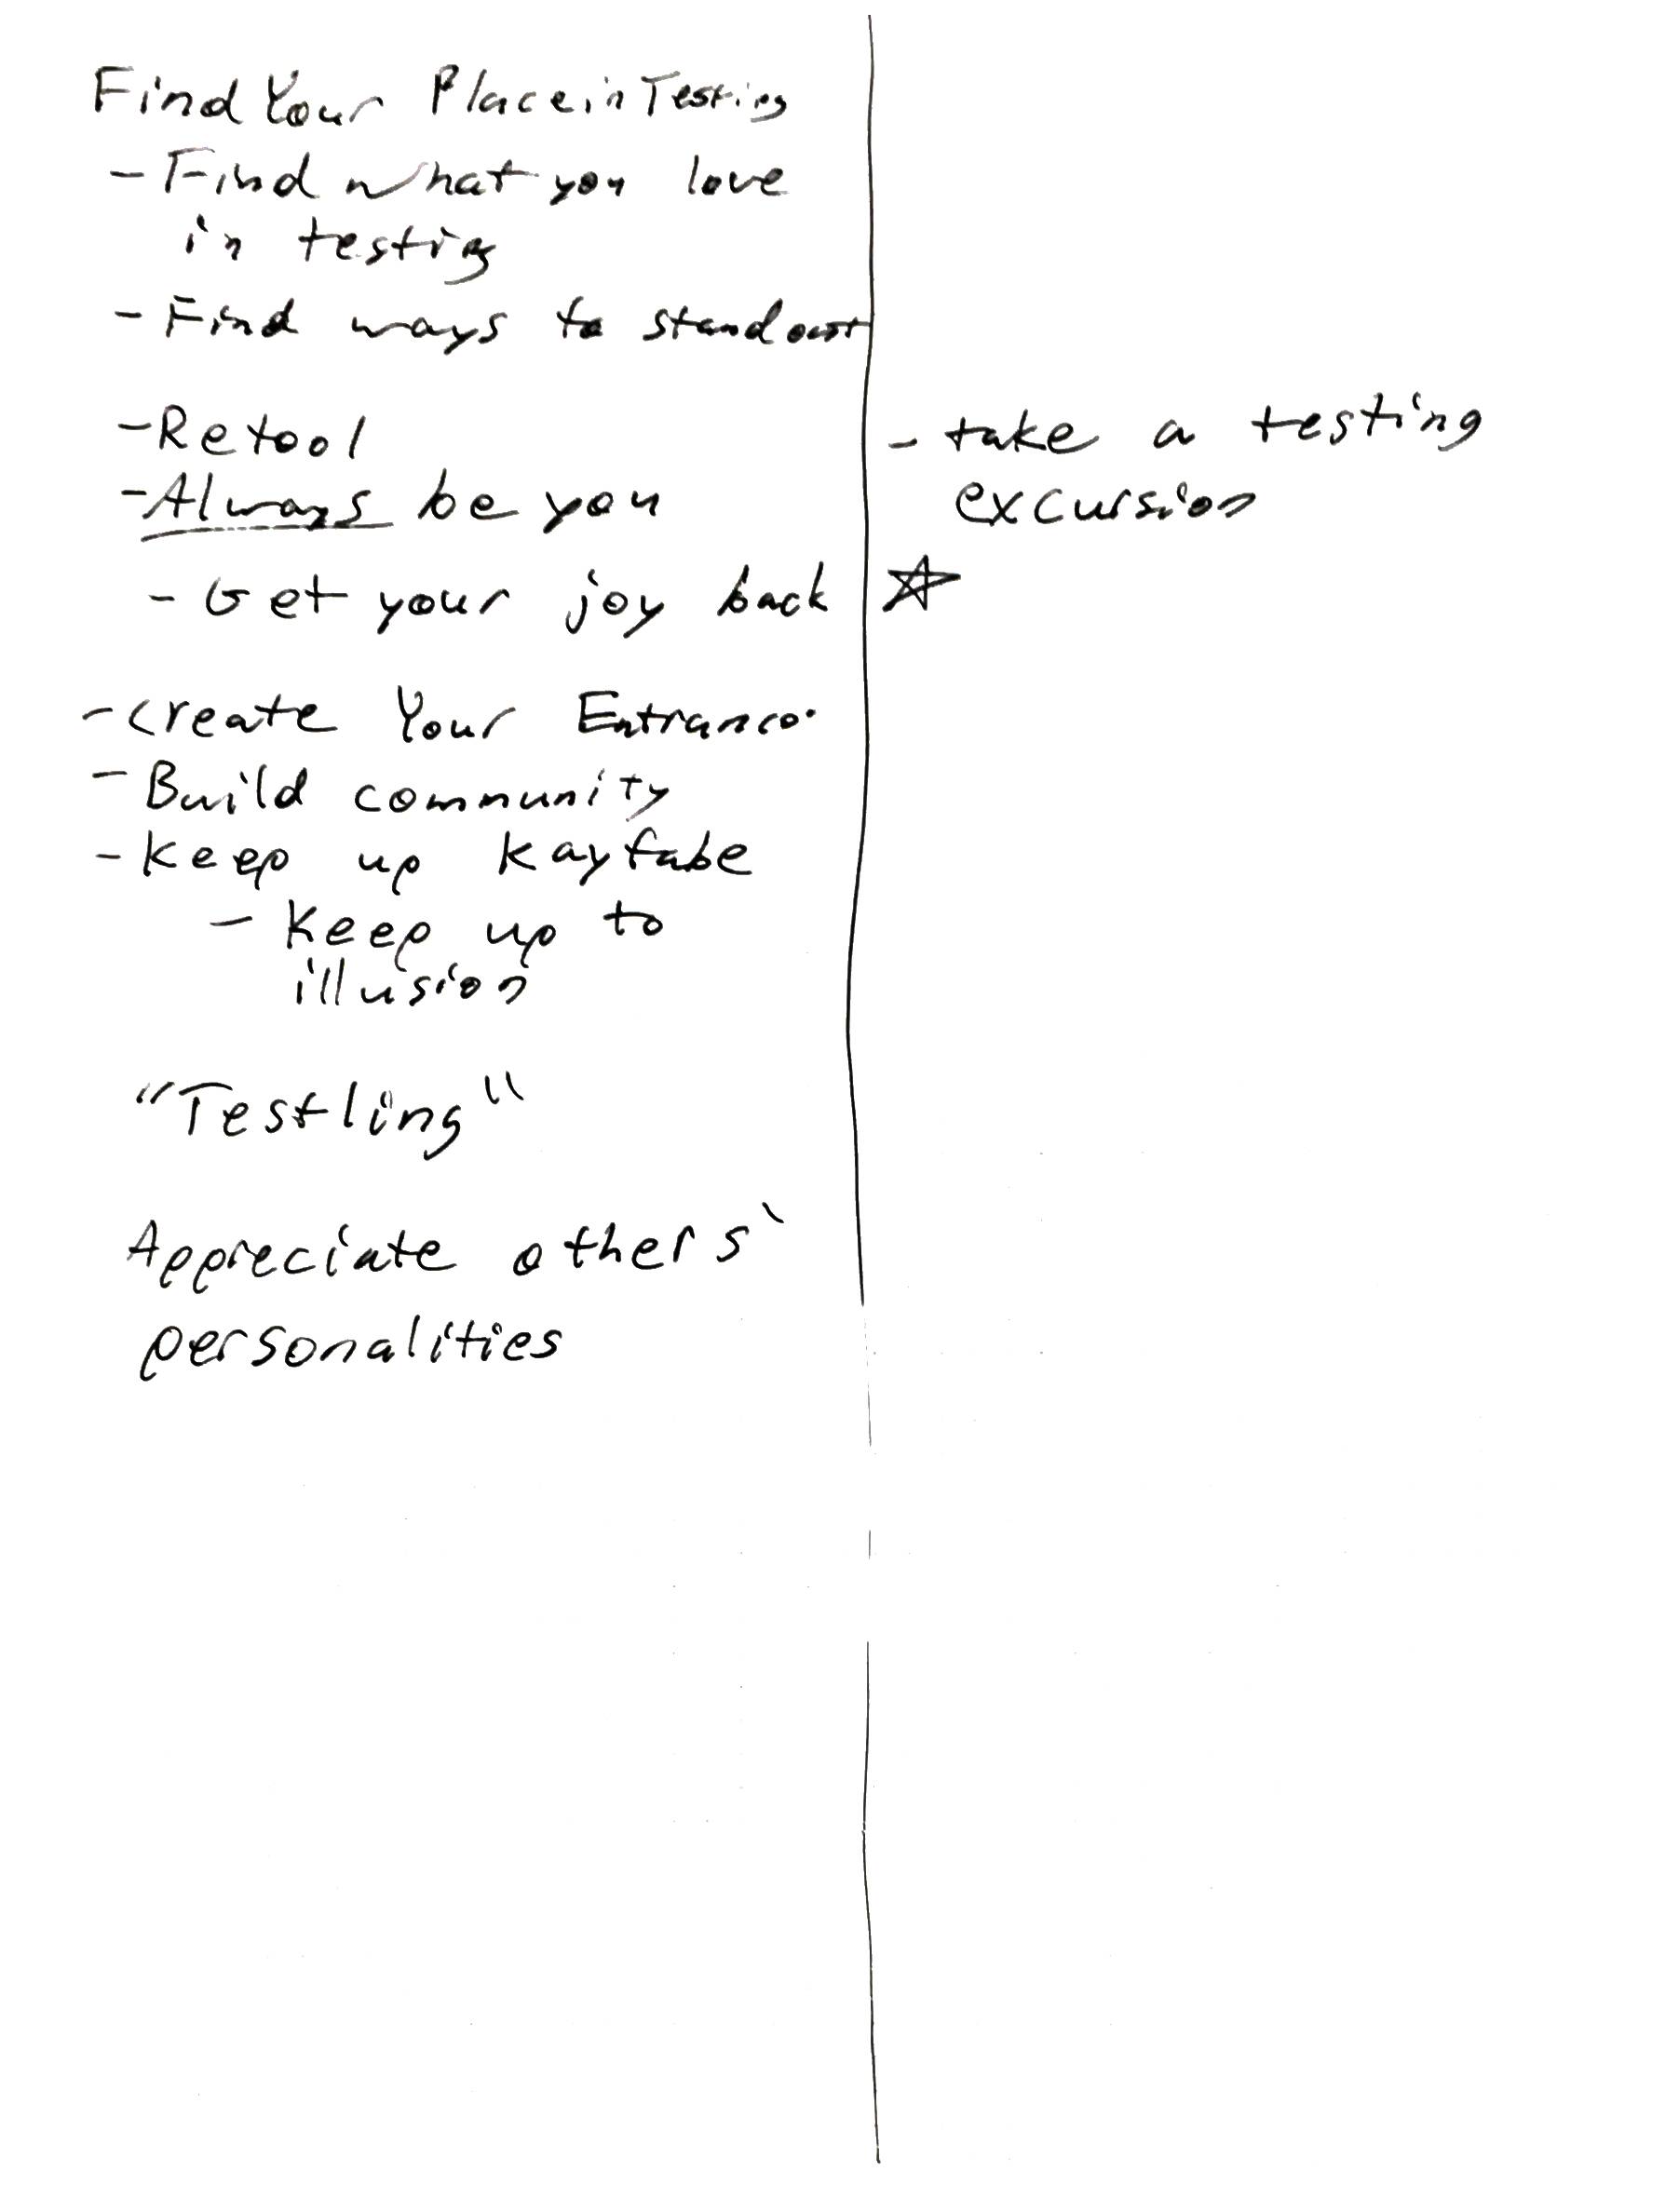 Find Your Place in Testing
- Find what you love
in testing
- Find ways to stand out
- Retool
- Always be you
- Get your joy back
- Create Your Entrance
- Build community
- Keep up Kayfabe
- Keep up to
illusion
"Testling"
Appreciate others'
personalities
- take a testing
excursion